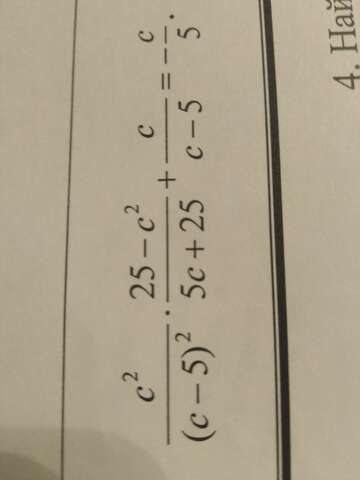 c²/(c − 5)² · (25 − c²)/(5c + 25) + c/(c − 5) = − c/5.
4. Най